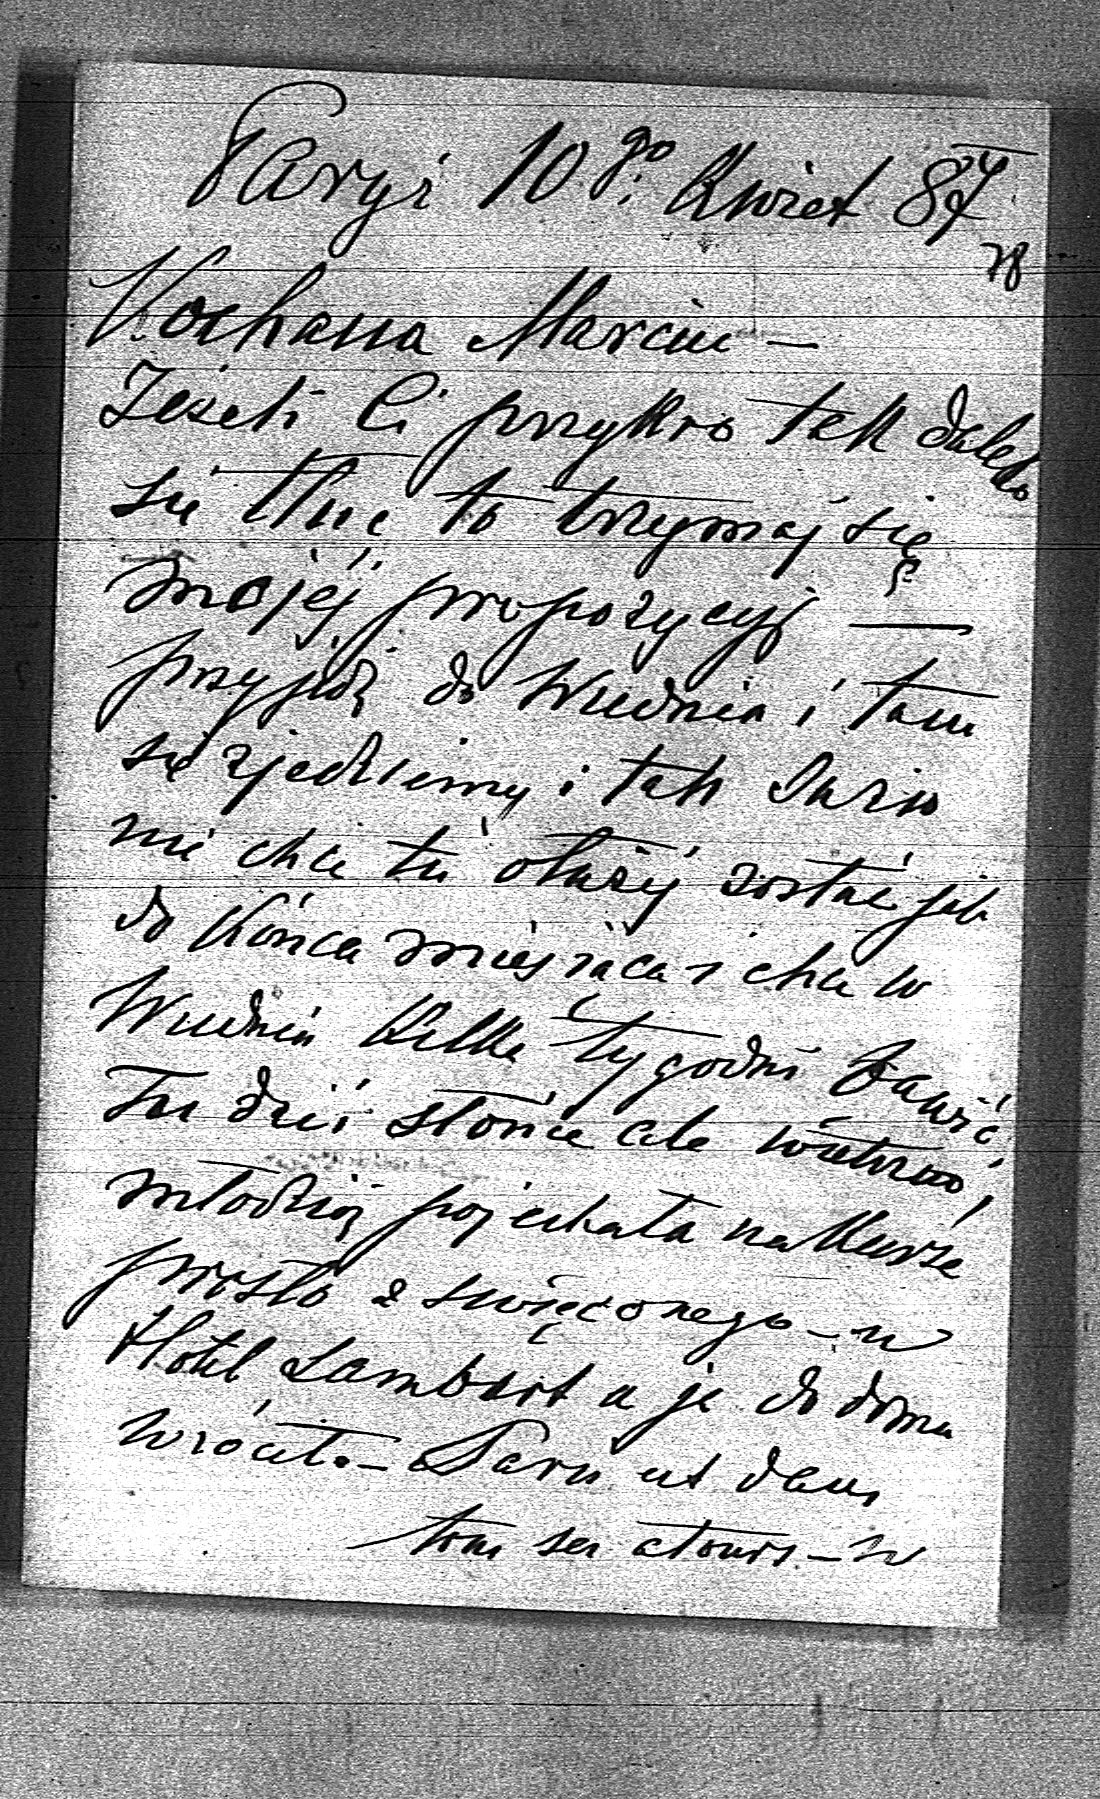 Paryż 10go. Kwiet 87
78
Kochana Marciu –
Jeżeli Ci przykro tak daleko
się tłuc to trzymaj się
mojéj propozycyi —
przyjedź do Wiednia i tam
się zjedziemy i tak
nie chce tu dłużéj zostać jak
do Końca miesiąca i chce w
Wiedniu kilka tygodni bawić
Tu dziś słońce ale wietrzno i
młodzież pojechała na Kursa
prosto z święconego – w
Hotel Lambert a ja do domu
wróciła – Paris est dans
tous ses atours – w